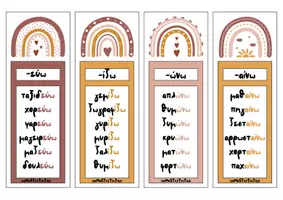 -εύω
ταξιδεύω
χορεύω
ψαρεύω
μαγειρεύω
μαζεύω
δουλεύω
-ίζω
γεμίζω
ζωγραφίζω
χαρίζω
γυρίζω
ποτίζω
θυμίζω
-ώνω
απλώνω
θυμώνω
ζυμώνω
κρυώνω
ματώνω
φορτώνω
-αίνω
μαθαίνω
πηγαίνω
ζεσταίνω
αρρωσταίνω
χορταίνω
παχαίνω